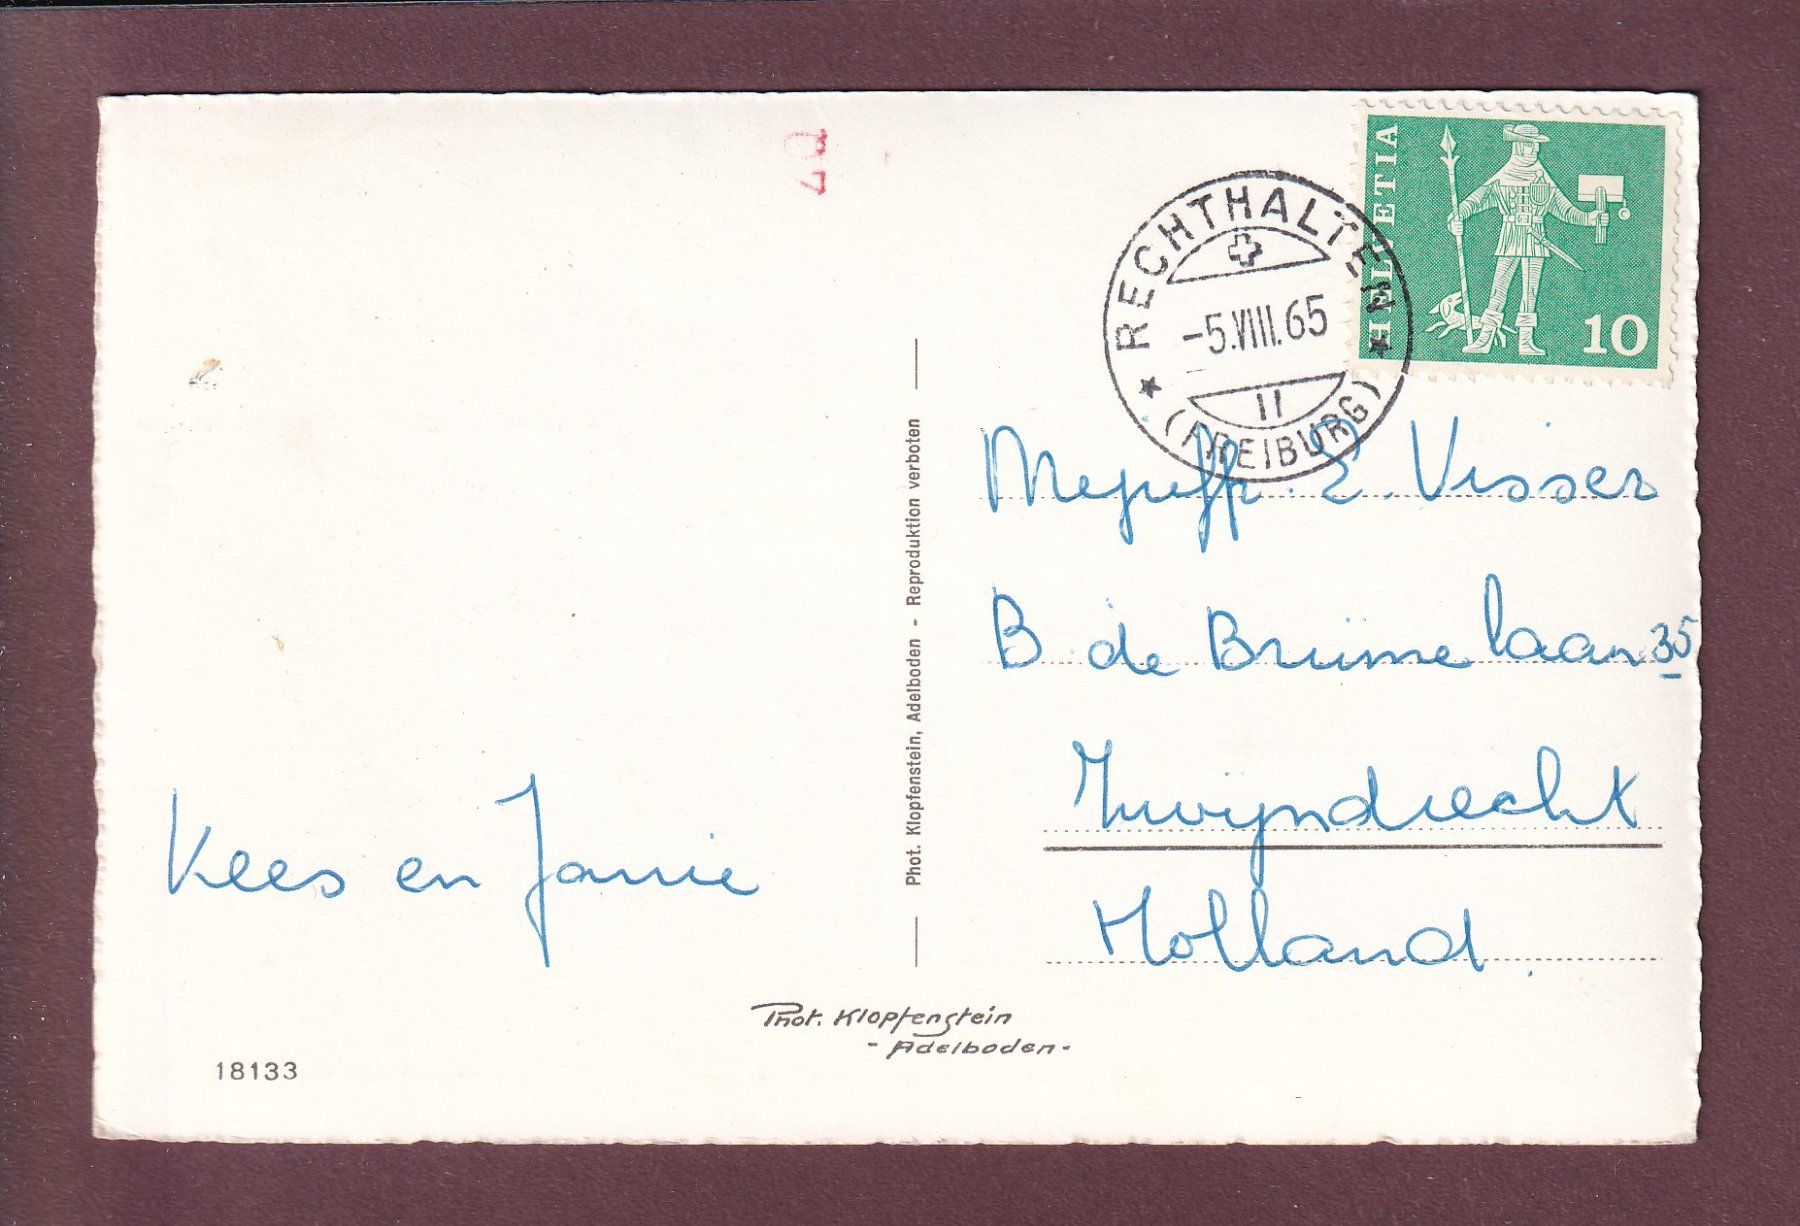 HELVETIA
10
RECHTHALTEN
-5.VIII.65
11
(FREIBURG)
Mejuffr. E. Visser
B de Brüine laan 35
Zwÿndrecht
Holland.
Kees en Janie
Phot. Klopfenstein, Adelboden - Reproduktion verboten
Phot. Klopfenstein
- Adelboden -
18133